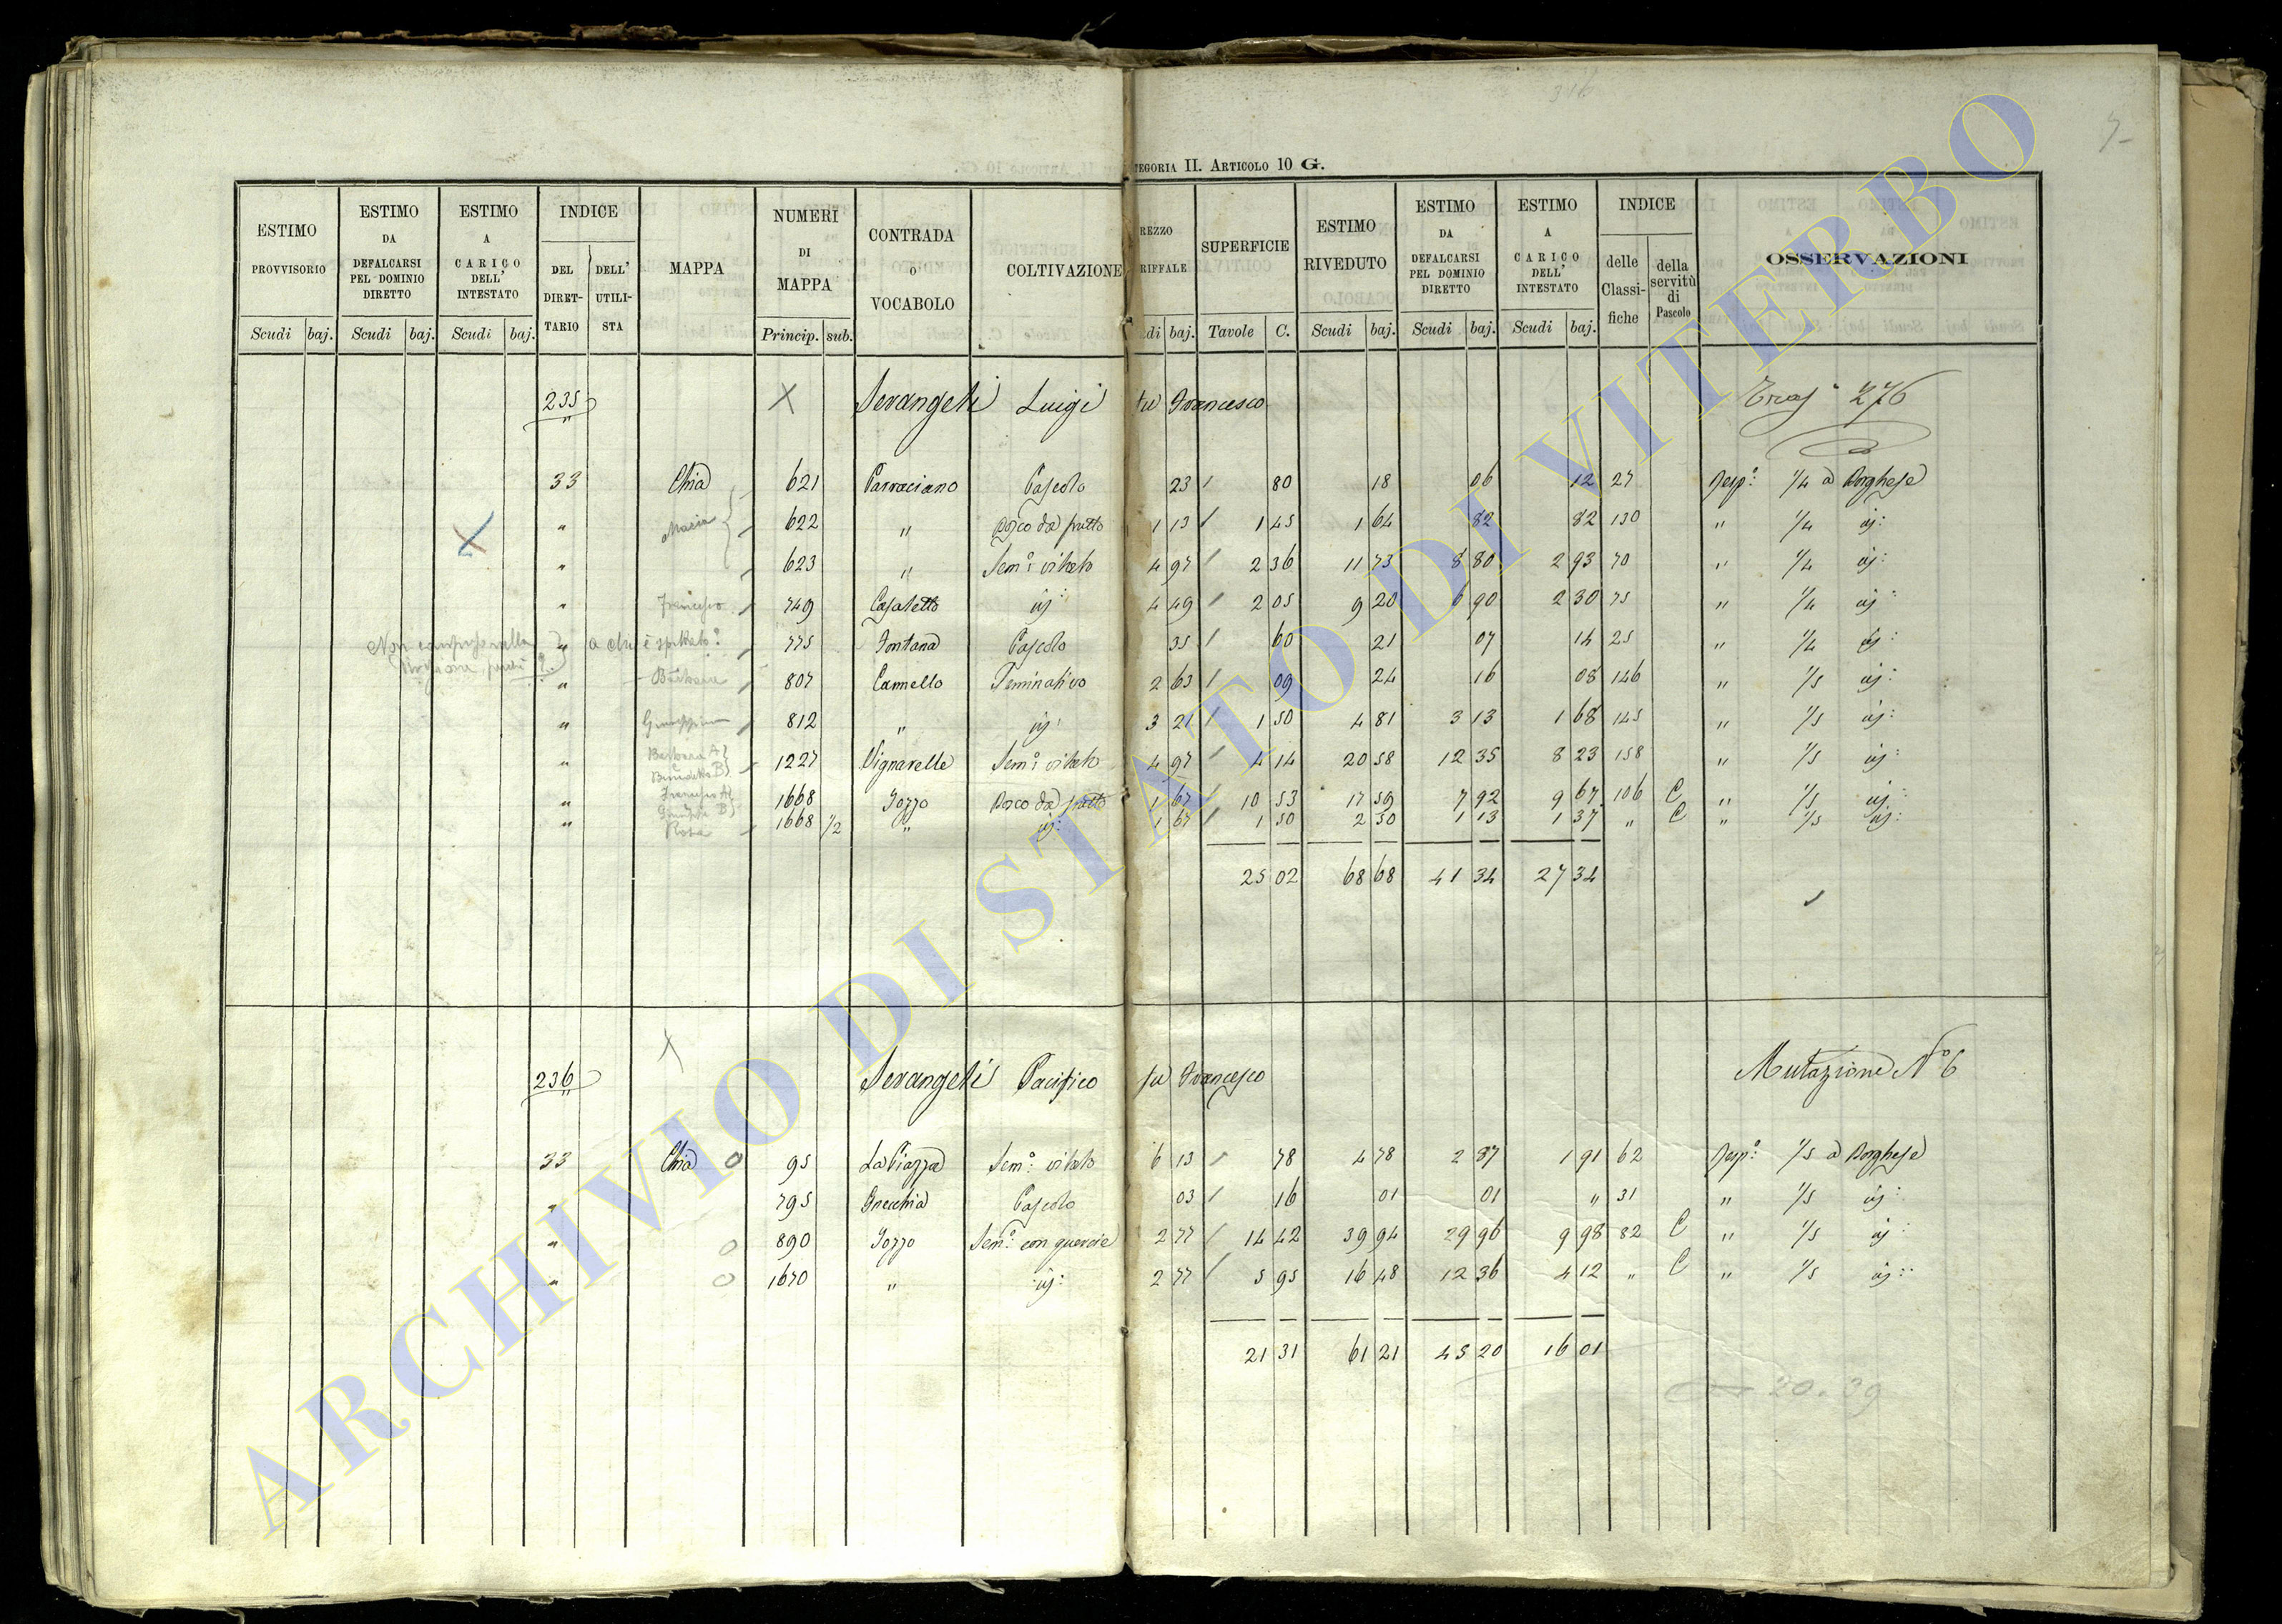 316
7-
TEGORIA II. ARTICOLO 10 G.
ESTIMO PROVVISORIO Scudi baj.
ESTIMO DA DEFALCARSI PEL DOMINIO DIRETTO Scudi baj.
ESTIMO A CARICO DELL' INTESTATO Scudi baj.
INDICE DEL DIRET-TARIO DELL' UTILI-STA
MAPPA
NUMERI DI MAPPA Princip. sub.
CONTRADA O VOCABOLO
COLTIVAZIONE
REZZO RIFFALE di baj.
SUPERFICIE Tavole C.
ESTIMO RIVEDUTO Scudi baj.
ESTIMO DA DEFALCARSI PEL DOMINIO DIRETTO Scudi baj.
ESTIMO A CARICO DELL' INTESTATO Scudi baj.
INDICE delle Classi-fiche della servitù di Pascolo
OSSERVAZIONI
235 X Serangeli Luigi fu Francesco Tras 276
33 Chia 621 Parraciano Pascolo 23 80 18 06 12 27 Resp: 1/4 a Borghese
" Maria 622 " Bosco da frutto 1 13 1 45 1 64 82 82 130 " 1/4 id:
" 623 " Sem: vitato 4 97 2 36 11 73 8 80 2 93 70 " 1/4 id:
" Francesco 749 Casaletto id: 4 49 2 05 9 20 6 90 2 30 75 " 1/4 id:
" a chi è spettato? 775 Fontana Pascolo 35 60 21 07 14 25 " 1/4 id:
" Barbara 807 Cannello Seminativo 2 63 09 24 16 08 146 " 1/5 id:
" Giuseppina 812 " id: 3 21 1 50 4 81 3 13 1 68 145 " 1/5 id:
" Barbara A Benedetto B 1227 Vignarelle Sem: vitato 4 97 4 14 20 58 12 35 8 23 158 " 1/5 id:
" Francesco A B 1668 Pozzo Bosco da frutto 1 67 10 53 17 59 7 92 9 67 106 C " 1/5 id:
" Rosa 1668 1/2 " id: 1 67 1 50 2 50 1 13 1 37 " C " 1/5 id:
25 02 68 68 41 34 27 34
236 X Serangeli Pacifico fu Francesco Mutazione N° 6
33 Chia 95 La Piazza Sem: vitato 6 13 78 4 78 2 87 1 91 62 Resp: 1/5 a Borghese
" 795 Grecchia Pascolo 03 16 01 01 " 31 " 1/5 id:
" 890 Pozzo Sem: con quercie 2 77 14 42 39 94 29 96 9 98 82 C " 1/5 id:
" 1670 " id: 2 77 5 95 16 48 12 36 4 12 " C " 1/5 id:
21 31 61 21 45 20 16 01
20.39
ARCHIVIO DI STATO DI VITERBO